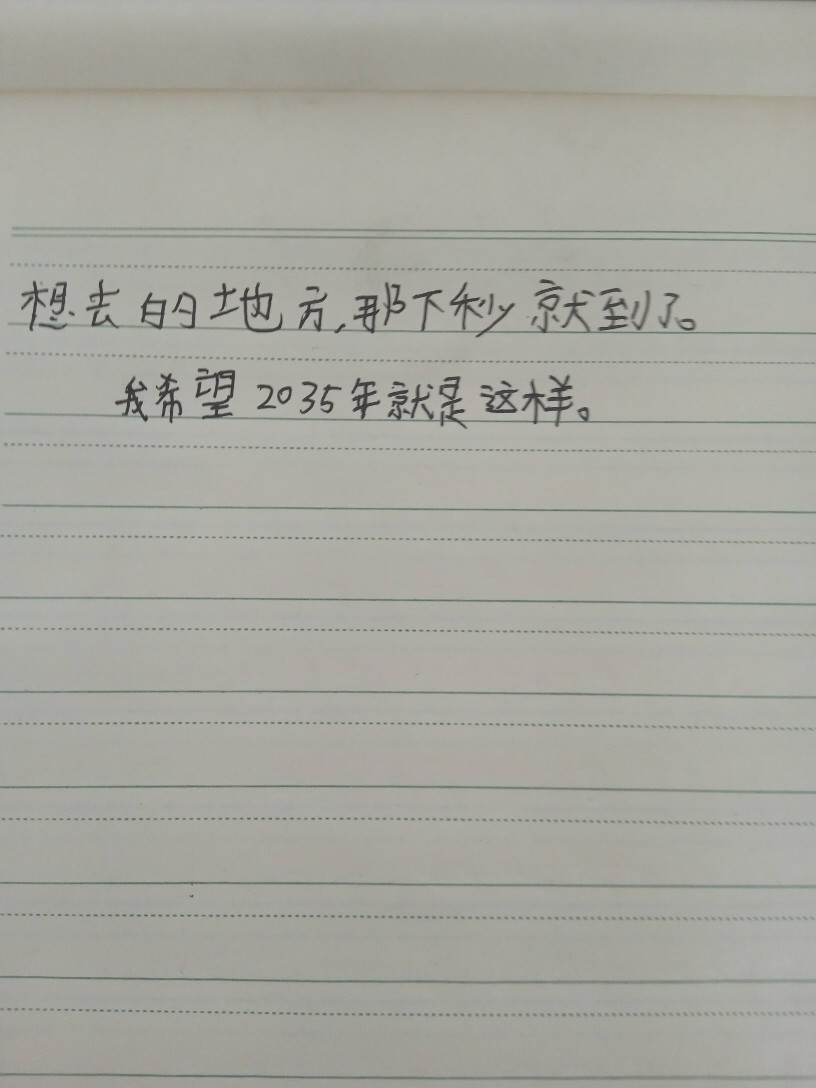 想去的地方,那下秒就到了。
我希望2035年就是这样。